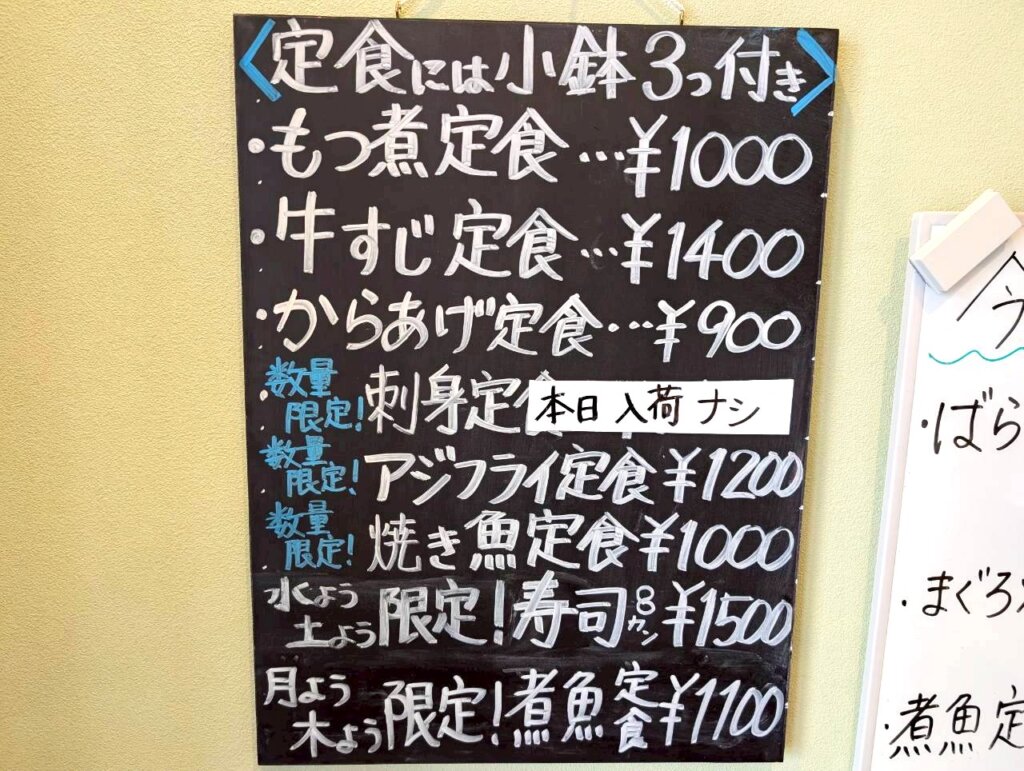 〈定食には小鉢3つ付き〉
・もつ煮定食…¥1000
・牛すじ定食…¥1400
・からあげ定食…¥900
数量限定!刺身定 本日入荷ナシ
数量限定!アジフライ定食¥1200
数量限定!焼き魚定食¥1000
水よう土よう限定!寿司8カン¥1500
月よう木よう限定!煮魚定食¥1100
・ばら
・まぐろ
・煮魚定